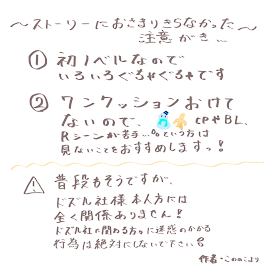 〜ストーリーにおさまりきらなかった〜
注意がき…
① 初ノベルなので
いろいろぐちゃぐちゃです
② ワンクッションおけて
ないので、 cPやBL、
Rシーンが苦手…。という方は
見ないことをおすすめしますっ!
普段もそうですが、
ドズル社様本人方には
全く関係ありません!
ドズル社に関わる方々に迷惑のかかる
行為は絶対にしないで下さい!
作者・このこより